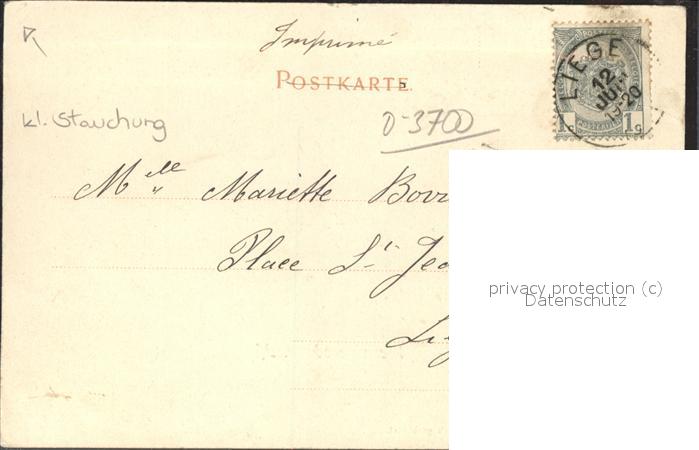 Imprimé
POSTKARTE
kl. Stauchung
D-3700
LIEGE
12
JUI
19-20
1c 1c
Mlle Mariette
Place St
privacy protection (c)
Datenschutz